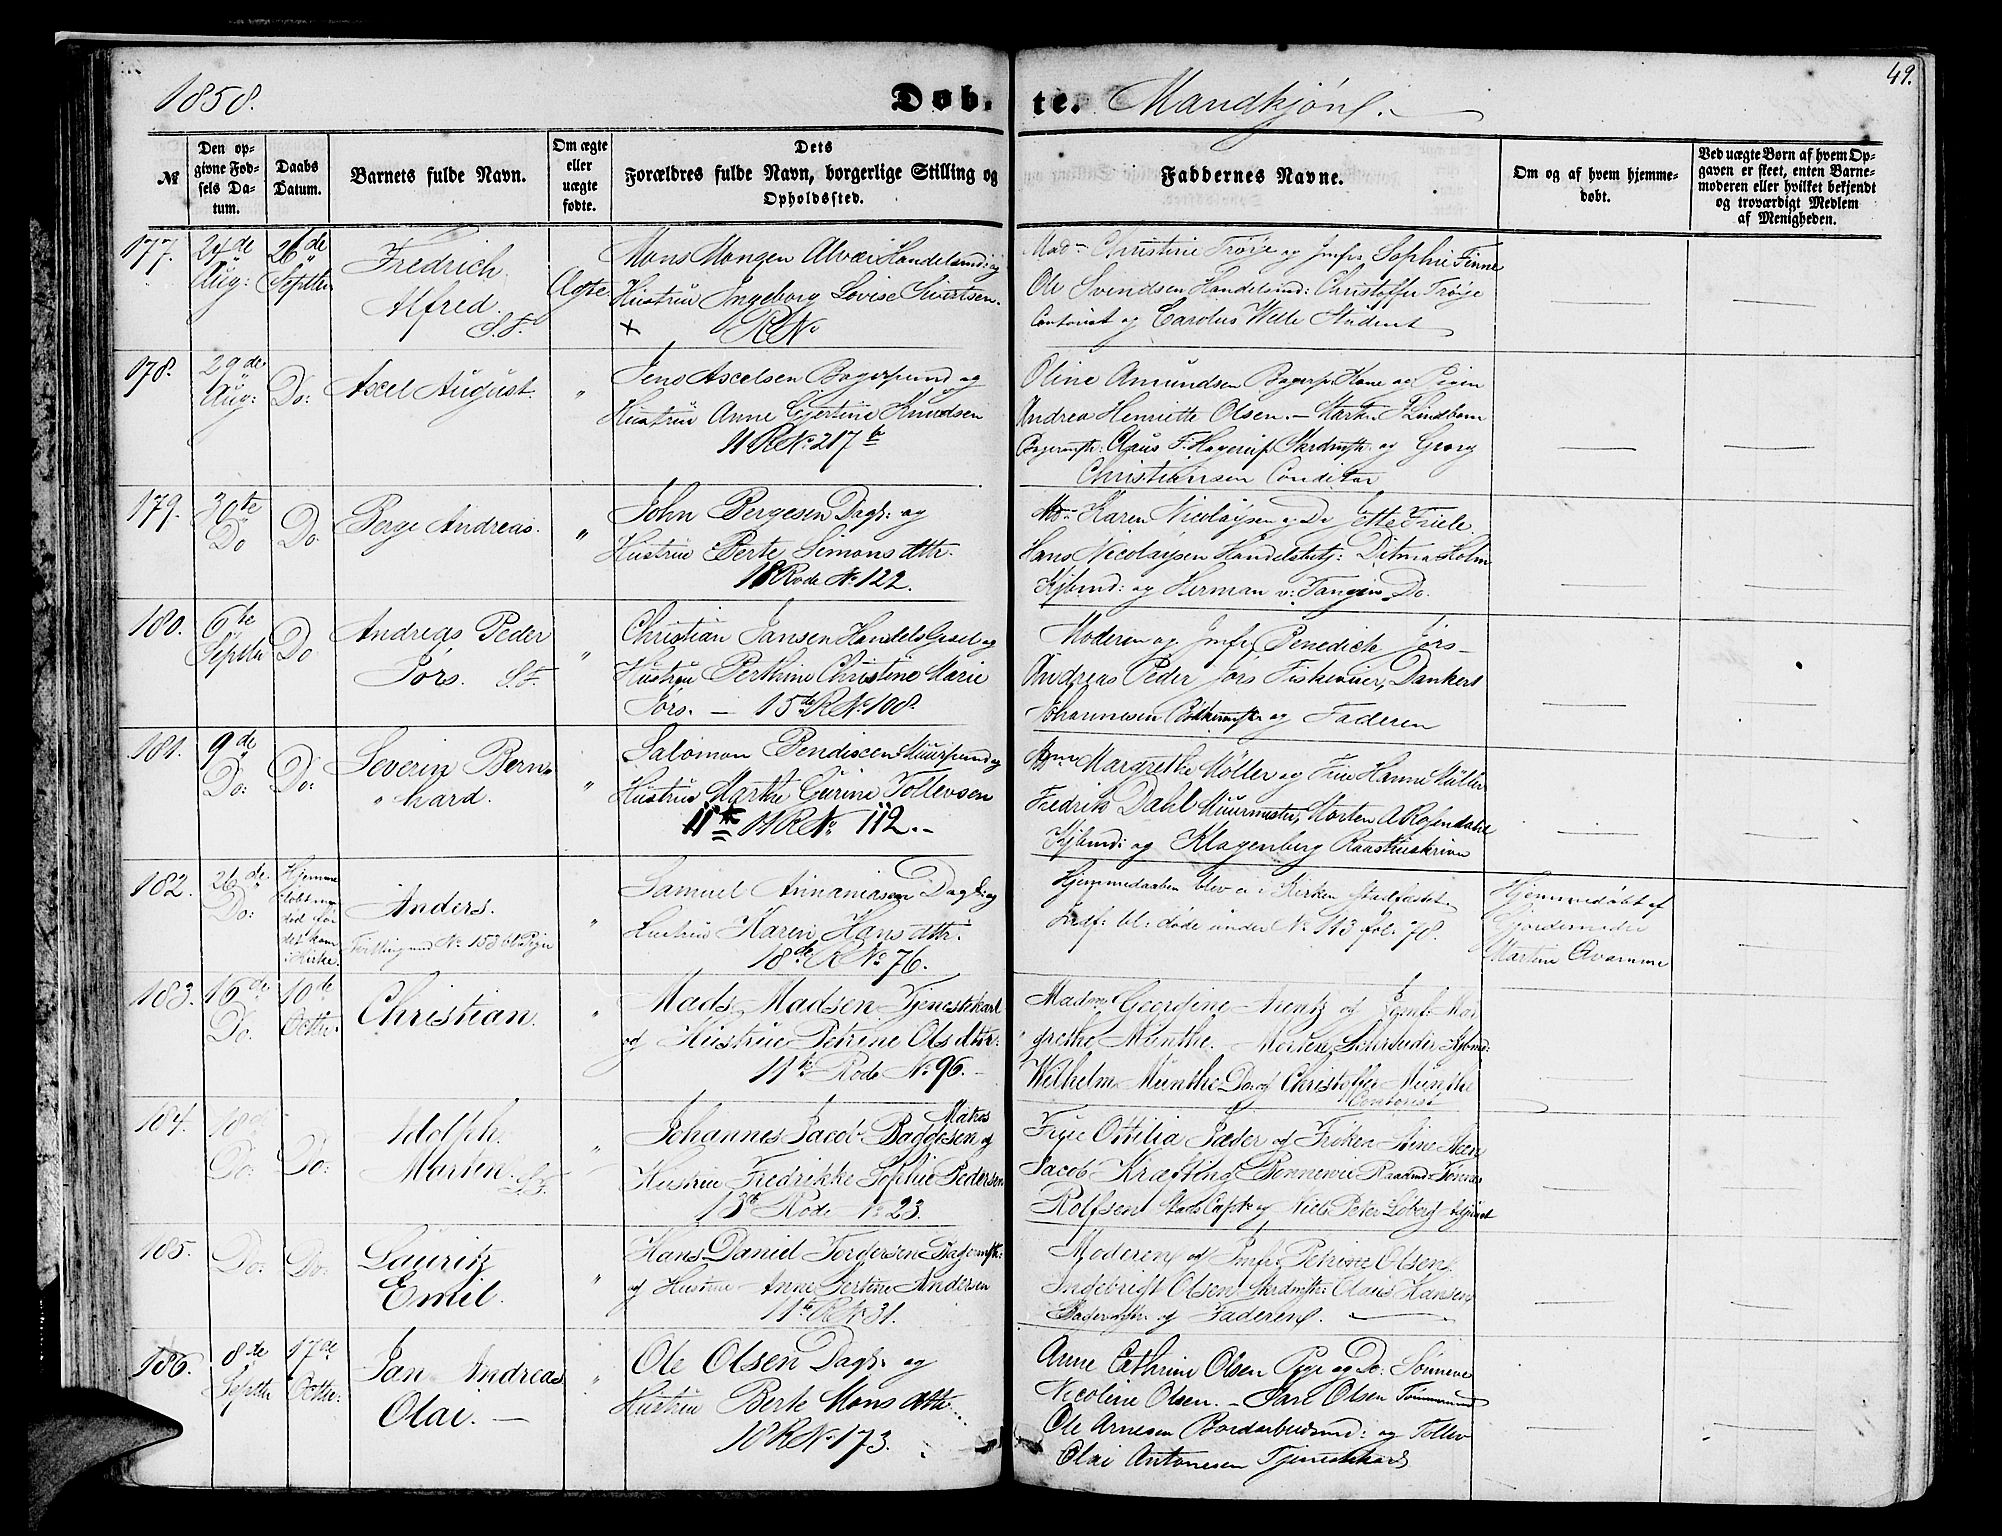 49.
1858.
Døb- te. Mandkjøn.
№
Den op-
givne Fød-
sels Da-
tum.
Daabs
Datum.
Barnets fulde Navn.
Om ægte
eller
uægte
fødte.
Dets
Forældres fulde Navn, borgerlige Stilling og
Opholdssted.
Faddernes Navne.
Om og af hvem hjemme-
døbt.
Ved uægte Børn af hvem Op-
gaven er skeet, enten Barne-
moderen eller hvilket bekjendt
og troværdigt Medlem
af Menigheden.
177.
24de
Aug:
26de
Septbr
Fredrich
Alfred.
S.F.
Ægte
Mons Mongen Alvær Handelsmd: og
Hustru Ingeborg Lovise Sivertsen.
Madm Christine Trøye og Jmfr Sophie Finne
Ole Svendsen Handelsmd: Christoffer Trøye
Contorist og Carolus Welle Student
178.
29de
Aug:
Do:
Axel August.
"
Jens Axelsen Bagersvend og
Hustru Anne Gjertine Knudsen
11 R No 217 b
Oline Amundsen Bagersv Kone og Pigen
Andrea Henriette Olsen. - Lindbom
Bagermstr: Claus F. Hagerup Skrdmstr og Georg
Christiansen Conditor
179.
30te
Do
Do
Berge Andreas.
"
John Bergesen Dagk: og
Hustru Berte Simons dttr.
18 Rode No 122.
Md Karen Nicolaysen og Do Jette Friele
Hans Nicolaysen Handelsbetj: Ditmar Holm
Kjbmd: og Herman v: Tangen Do.
180.
6te
Septbr
Do
Andreas Peder
Jørs. S.F.
"
Christian Jansen Handels Gesel og
Hustru Berthine Christine Marie
Jørs. - 15de R No 108.
Moderen og Jmfr Benedich Jørs -
Andreas Peder Jørs Fiskeveier, Dankert
Johannesen Bødkermstr og Faderen
181.
9de
Do:
Do:
Severin Bern-
hard.
"
Salomon Bendixen Muursvend og
Hustru Marthe Gurine Tollevsen
11te R No 112. -
Margrethe Møller og Frue Hanne Müller
Fredrik Dahl Muurmester, Morten A Rosendahl
Kjbmd: og Klagenberg
182.
26de
Do:
Hjemme
døbt men
død før
det kom
i Kirke.
Anders.
Tvilling med No 153 bl: Piger
"
Samuel Annaniassen Dagk: og
Hustru Karen Hans dttr.
18de R No 76.
Hjemmedaaben blev ei i Kirken stadfæstet.
Indf: bl: døde under No 143 fol: 78.
Hjemmedøbt af
Gjordemoder
Martine Qvamme
183.
16de
Do:
10de
Octbr.
Christian.
"
Mads Madsen Tjenestekarl
og Hustrue Petrine Ols dttr:
11te Rode No 96. -
Madme Georgine og Jomf: Mar-
grethe Munthe. - Morten Schrøder Kjbmd:
Wilhelm Munthe Do og Christoffer Munthe
Contorist
184.
18de
Do:
Do:
Adolph
Morten S.F.
"
Matros
Johannes Jacob Baggesen og
Hustru Fredrikke Sophie Pedersen
13de Rode No 23.
Frue Ottilia Sæder og Frøken Stine Meen
Jacob Kræfting Bonnevie Raadmd: Tønnes
Rolfsen Stads Capt: og Niels Peter Løberg Adjunct
185.
Do:
Do:
Lauritz
Emil.
"
Hans Daniel Tordersen Bagermstr:
og Hustrue Anne Bertine Andersen
11te R No 31.
Moderen og Jmfr Petrine Olsen,
Ingebrigt Olsen Skrdmstr: Claus Hansen
Bagermstr og Faderen.
186.
8de
Septbr
17de
Octbr.
Jan Andreas
Olai. -
"
Ole Olsen Dagk: og
Hustrue Berte Mons dttr.
10 R No 173.
Anne Cathrine Olsen Pige og Do:
Nicoline Olsen. - Olsen Tømmermd
Ole Arnesen Bordarbeidsmd: og Tollev
Olai Antonesen Tjenestekarl